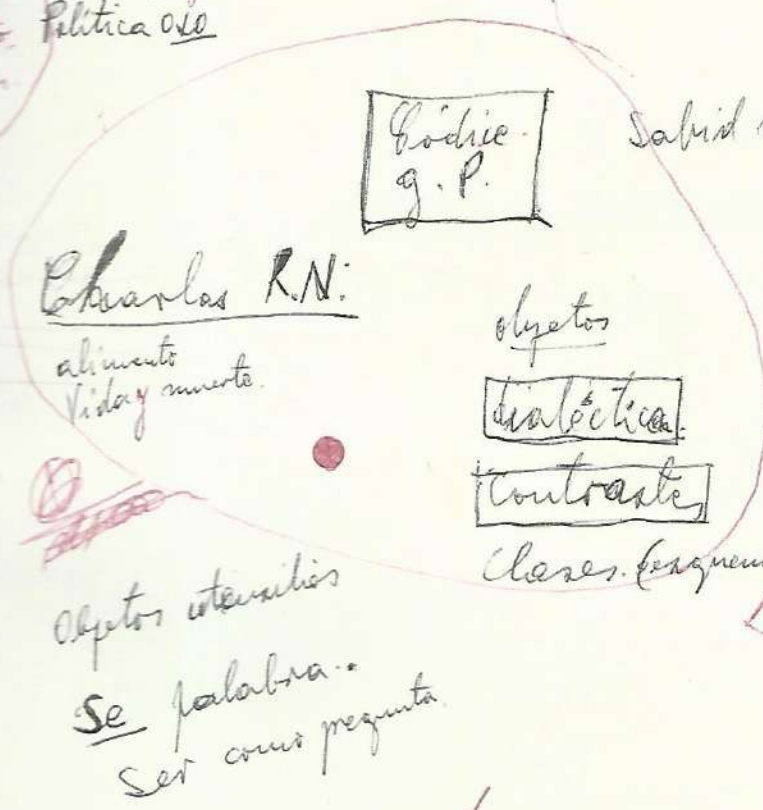 Política OXO
Códice.
g. P.
Sabid
Charlas R.N:
alimento
Vida y muerte.
objetos
dialéctica.
Contrastes
Clases. (esquem
Objetos utensilios
Se palabra..
Ser como pregunta.